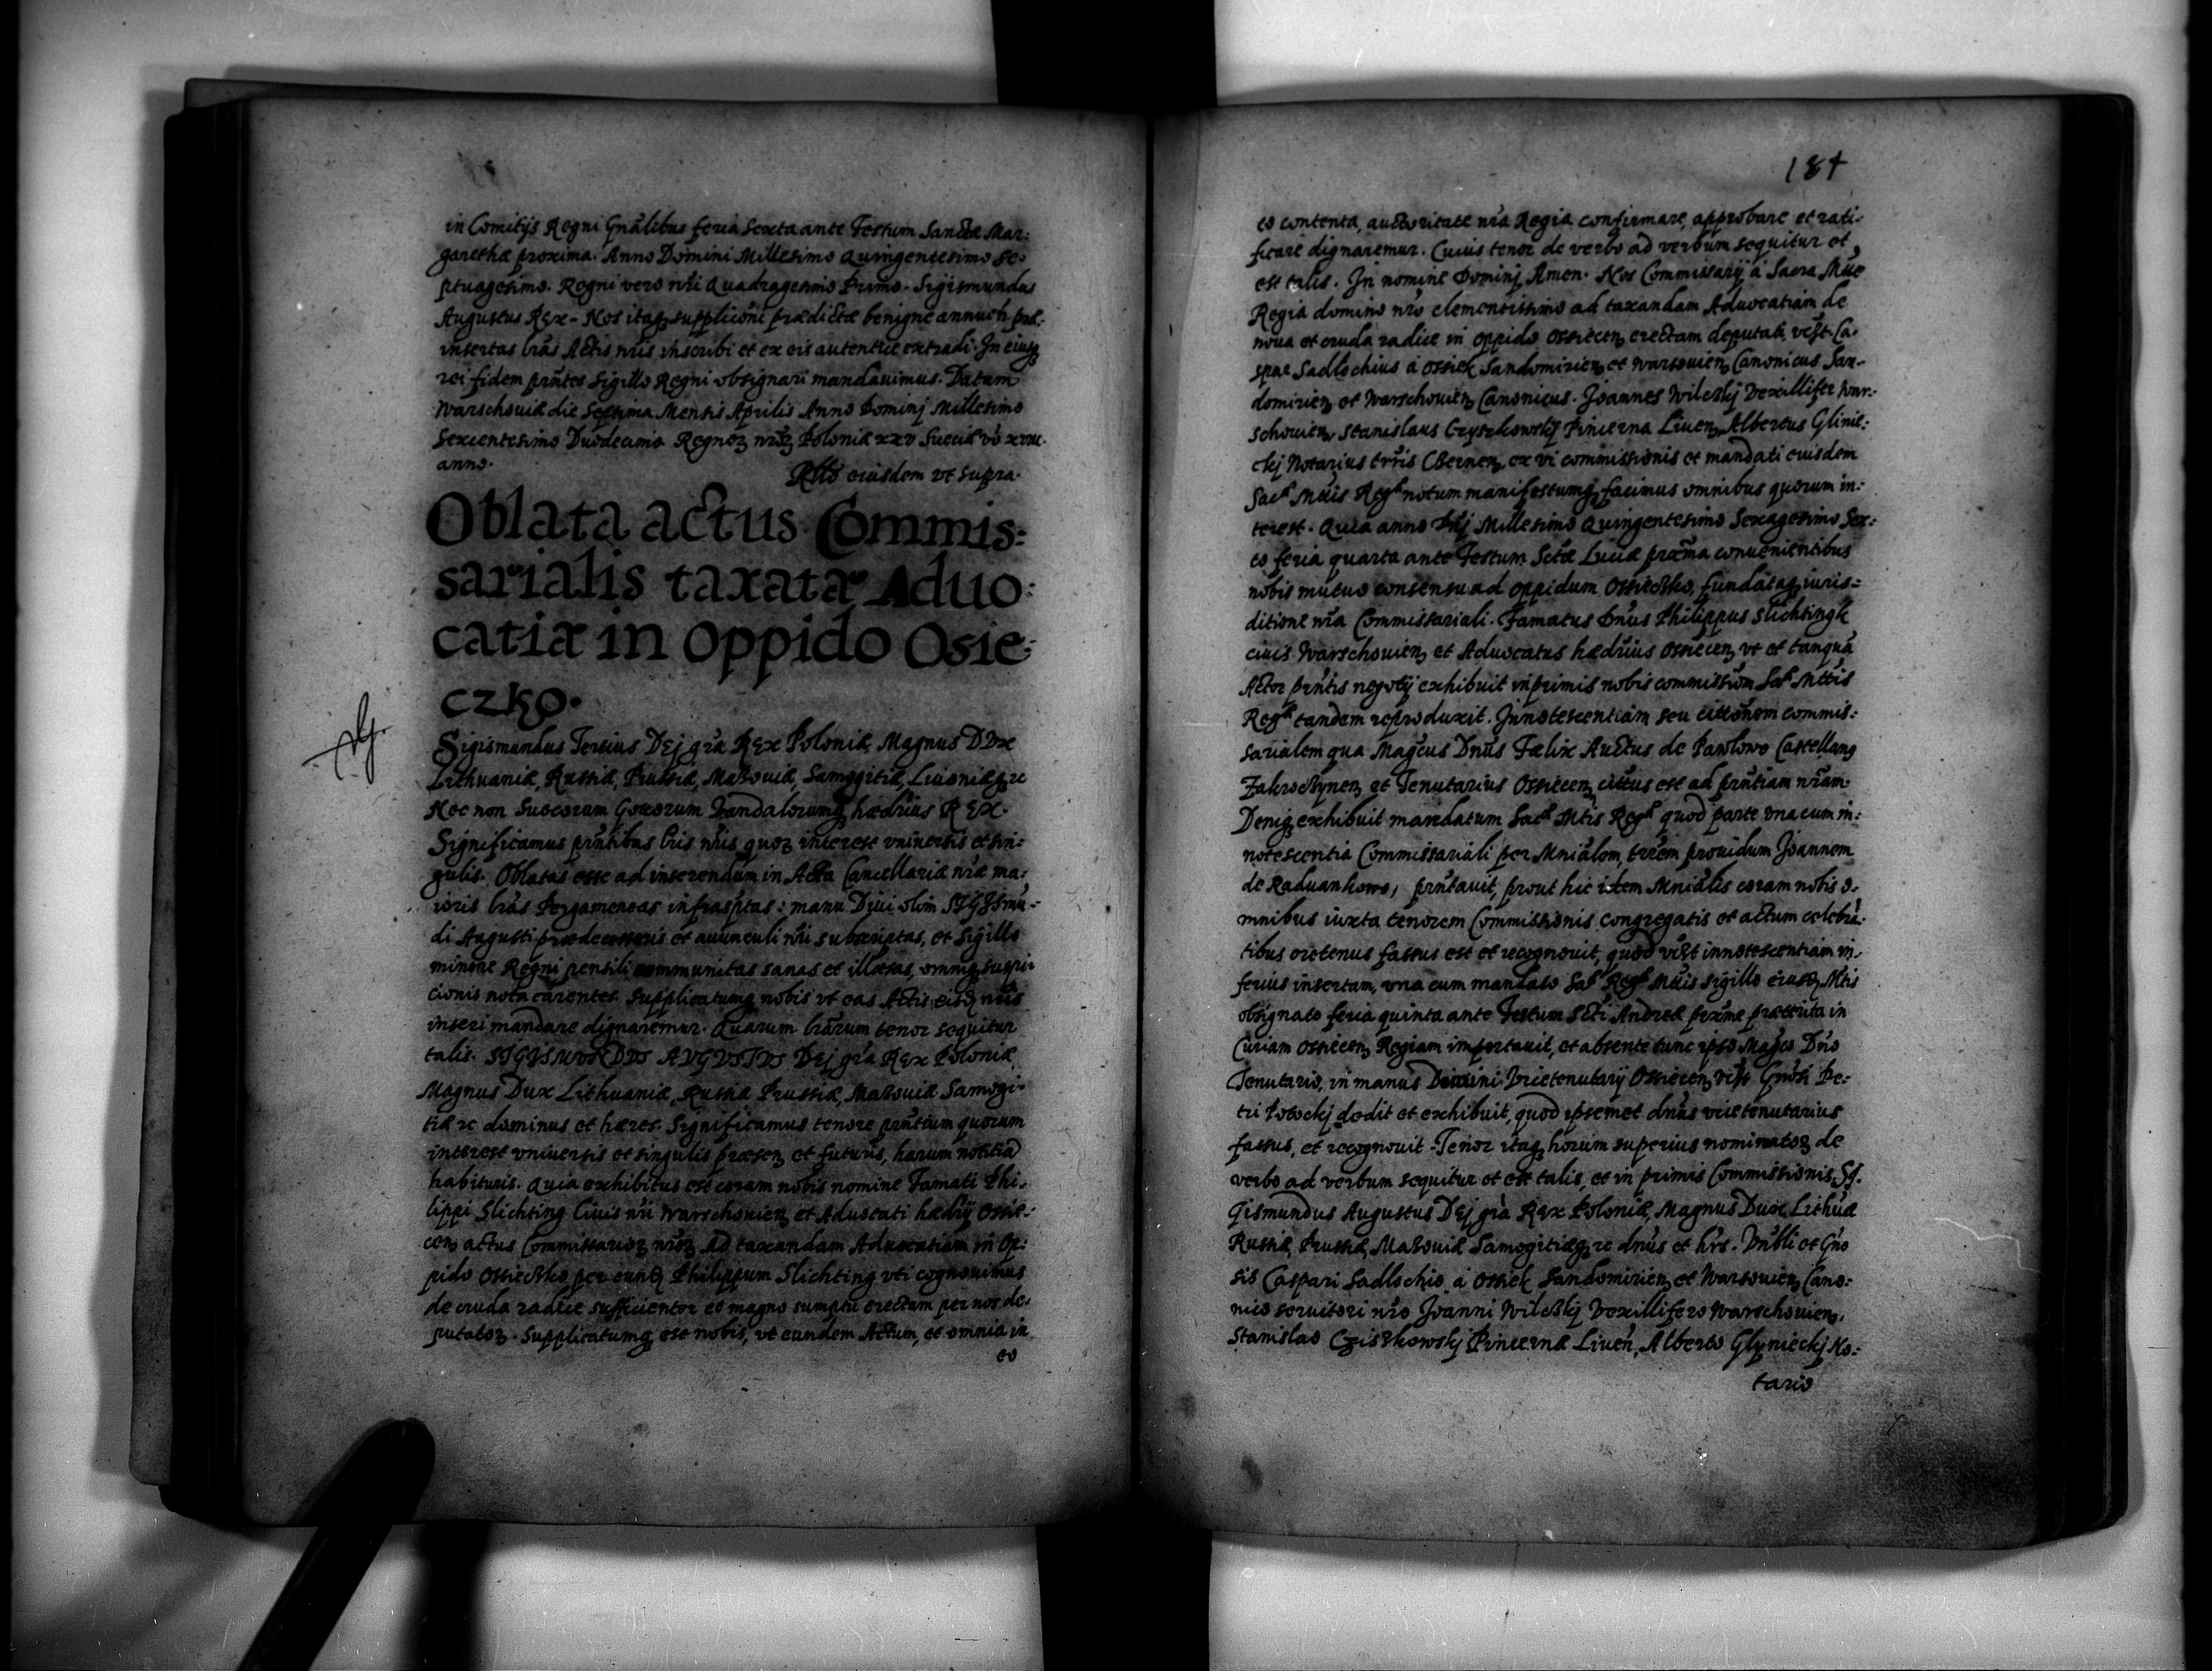 in Comitijs Regni Gnãlibus feria Sexta ante Festum Sanctæ Mar:
garethæ proxima. Anno Domini Millesimo Quingentesimo Se-
ptuagesimo. Regni vero nŕi Quadragesimo Primo. Sigismundus
Augustus REX - Nos itaq supplicõni prædictæ benigne annueń præ:
insertas lrãs Actis nŕis inscribi et ex eis autentice extradi. In cuiq
rei fidem prñtes Sigillo Regni obsignari mandauimus. Datum
Warschouiæ die Septima Mensis Aprilis Anno Dominj Millesimo
Sexcentesimo Duodecimo Regnoȝ nŕoȝ Poloniæ xxv Sueciæ vo xviii.
anno.
Rltio eiusdem vt supra.
Oblata actus Commis:
sarialis taxatæ Aduo:
catiæ in oppido Osie:
czko.
Sigismundus Tertius DEj grã REX Poloniæ Magnus DVx
Lithuaniæ, Russiæ, Prussiæ, Masouiæ, Samogitiæ, Liuoniæq ec
Nec non Suecorum Gottorum Vandalorumq hædrius REX.
Significamus prñtibus lris nŕis quoȝ interest vniuersis et sin:
gulis. Oblatas esse ad inserendum in Acta Cancellariæ nŕæ ma:
ioris lrãs Pergameneas infrasptas: manu Diui olim SIGISmũ-
di Augusti prædecessoris et auunculi nŕi subscriptas, et Sigillo
minore Regni pensili communitas sanas et illæsas, omniq suspi
cionis nota carentes. Supplicatumq nobis vt eas Actis eisd nŕis
inseri mandare dignaremur. Quarum lrãrum tenor sequitur
talis. SIGISMVNDVS AVGVSTVS DEj grã REX Poloniæ,
Magnus Dux Lithuaniæ, Russiæ Prussiæ, Masouiæ Samogi-
tiæ ec dominus et hæres. Significamus tenore prñtium quorum
interest vniuersis et singulis præsen et futuris, harum notitia
habituris. Quia exhibitus est coram nobis nomine Famati Phi-
lippi Slichting Ciuis nŕi Warschouien et Aduocati hædrij Ossie:
cen, actus Commissarioȝ nŕoȝ ad taxandam Aduocatiam in Op:
pido Ossiecsko per eund Philippum Slichting vti cognouimus
de cruda radice sufficienter et magno sumptu erectam per nos de-
putatoȝ. Supplicatumq est nobis, vt eundem Actum, et omnia in
eo
184
eo contenta, auctoritate nŕa Regia confirmare, approbare et rati-
ficare dignaremur. Cuius tenor de verbo ad verbum sequitur et
est talis. In nomine Dominj Amen. Nos Commissarij á Sacra Mtte
Regia domino nŕo clementissimo ad taxandam Aduocatiam de
noua et cruda radice in oppido Ossiecen erectam deputati, vest. Ca-
spar Sadlochius á Ossiek Sandomirien et Warsouien Canonicus San-
domirien et Warschouien Canonicus. Joannes Wilczkj Vexillifer War-
schouien, Stanislaus Czyszkowskj Pincerna Liuen, Albertus Glinie:
ckj Notarius trŕis Czernen, ex vi commissionis et mandati euisdem
Sacæ Mttis Regæ notum manifestumq facimus omnibus quorum in:
terest. Quia anno Dnj Millesimo Quingentesimo Sexagesimo Sex:
to feria quarta ante Festum Sctæ Luciæ proxma conuenientibus
nobis mutuo consensu ad oppidum Ossiecsko, fundataq iuris:
ditione nŕa Commissariali. Famatus Dnus Philippus Slichtingk
ciuis Warschouien et Aduocatus hædrius Ossiecen vt et tanquã
Actor prñtis negotij exhibuit inprimis nobis commissiõm Saæ Mttis
Regæ tandem reproduxit. Innotescentiam seu cittõnem commis:
sarialem qua Magcus Dnus Fælix Auctus de Pawlowo Castellanq
Zakroczynen et Tenutarius Ossiecen cittus est ad prñtiam nŕam.
Deniq exhibuit mandatum Sacæ Mtis Regæ quod parte vna cum in:
notescentia Commissariali per Mniãlem, trŕem prouidum Joannem
de Raduankowo, prñtauit, prout hic idem Mniãlis coram nobis o-
mnibus iuxta tenorem Commissionis congregatis et actum celebrã:
tibus oretenus fassus est et recognouit, quod videt innotescentiam in-
ferius insertam, vna cum mandato Saæ Regæ Mttis sigillo eiusd Mtis
obsignato feria quinta ante Festum Scti Andreæ proxme præterita in
Curiam Ossiecen Regiam importauit, et absente tunc ipso Magco Dno
Tenutario, in manus Domini Vicetenutarij Ossiecen videt Gnosi Pe-
tri Potockj dedit et exhibuit, quod ipsemet dnus vicetenutarius
fassus, et recognouit. Tenor itaq horum superius nominatoȝ de
verbo ad verbum sequitur et est talis, et in primis Commissionis, SI.
Gismundus Augustus DEj grã REX Poloniæ, Magnus Dux Lithuæ
Russiæ, Prussiæ, Masouiæ Samogitiæq ec dnus et hŕes. Vnbli et Gno
sis Caspari Sadlochio á Ossiek Sandomirien et Warsouien Cano:
nico seruitori nŕo Joanni Wilczkj Vexillifero Warschouien,
Stanislao Cziszkowskj Pincernæ Liuen, Alberto Glynieckj No:
tario